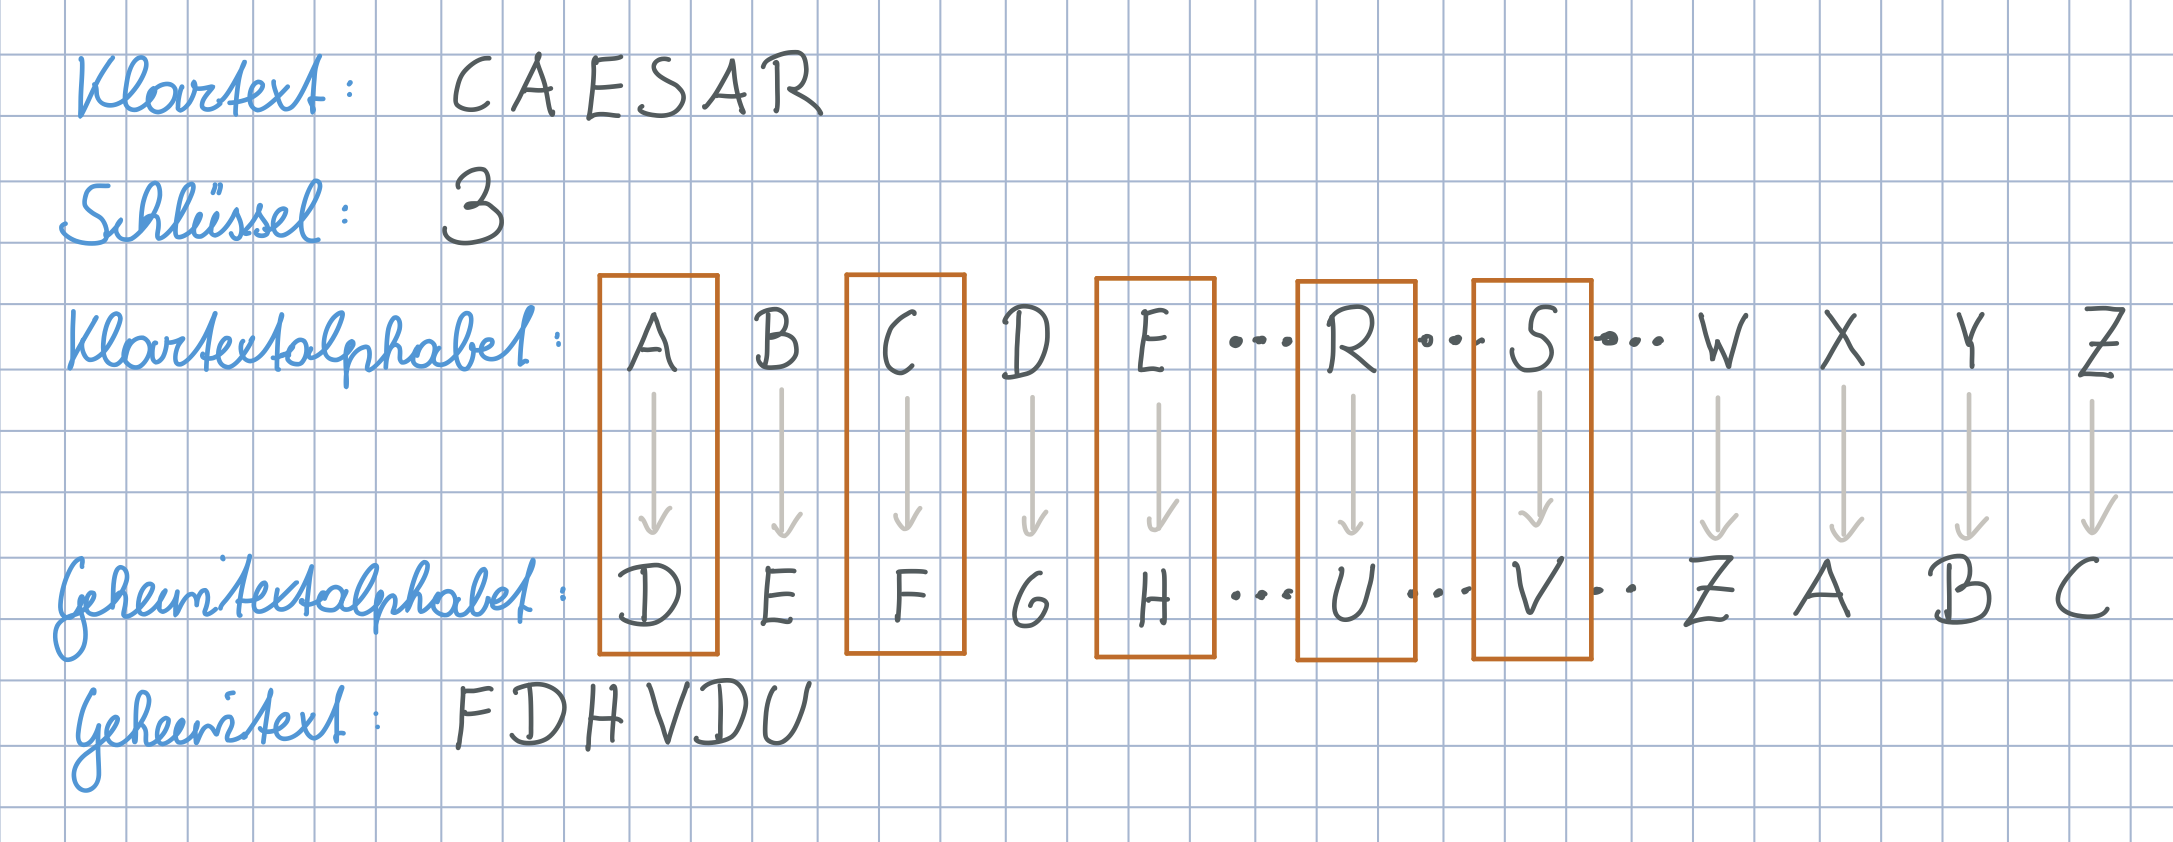 Klartext: CAESAR
Schlüssel: 3
Klartextalphabet: A B C D E ... R ... S ... W X Y Z
Geheimtextalphabet: D E F G H ... U ... V .. Z A B C
Geheimtext: FDHVDU